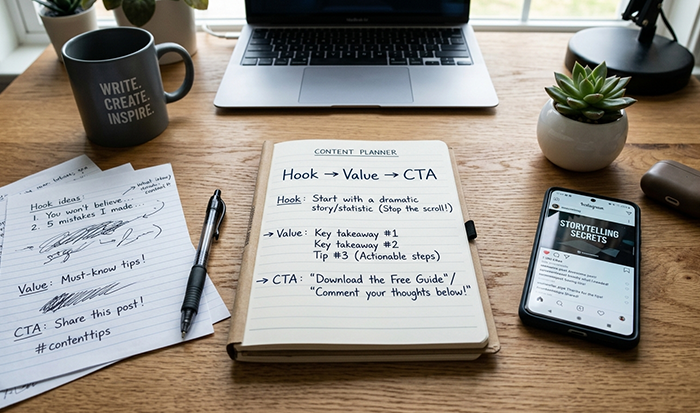 WRITE.
CREATE.
INSPIRE.
Hook ideas
1. You won't believe
2. 5 mistakes I made
Value: Must-know tips!
CTA: Share this post!
#contenttips
CONTENT PLANNER
Hook → Value → CTA
Hook: Start with a dramatic
story/statistic (Stop the scroll!)
→ Value: Key takeaway #1
Key takeaway #2
Tip #3 (Actionable steps)
→ CTA: "Download the Free Guide"/
"Comment your thoughts below!"
STORYTELLING
SECRETS